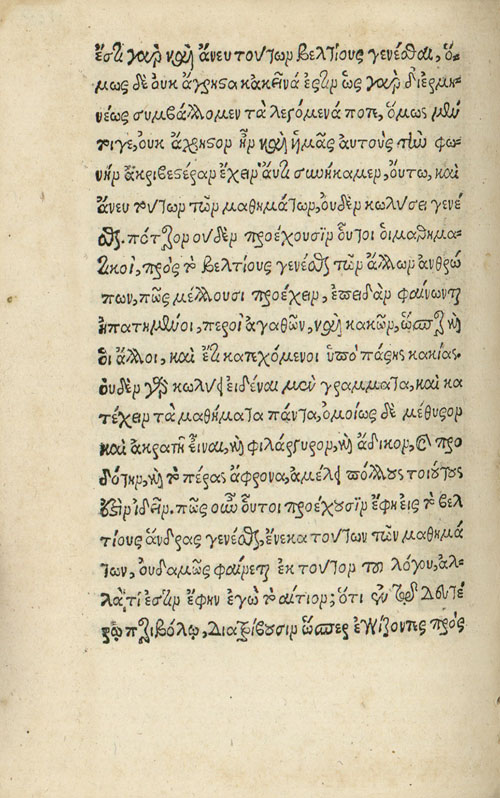 ἔστι γὰρ καὶ ἄνευ τούτων βελτίους γενέσθαι, ὅ-
μως δὲ οὐκ ἄχρηστα κακεῖνά ἐστιν ὡς γὰρ δι' ἑρμη-
νέως συμβάλλομεν τὰ λεγόμενά ποτε, ὅμως μέν
τοι γε, οὐκ ἄχρηστον ἦν καὶ ἡμᾶς αὐτοὺς τὴν φω-
νὴν ἀκριβεστέραν ἔχειν ἄν τι συνήκαμεν, οὕτω, καὶ
ἄνευ τούτων τῶν μαθημάτων, οὐδὲν κωλύσει γενέ
σθαι. πότερον οὐδὲν προέχουσιν οὗτοι οἱ μαθημα-
τικοὶ, πρὸς τὸ βελτίους γενέσθαι τῶν ἄλλων ἀνθρώ
πων, πῶς μέλλουσι προέχειν, ἐπειδὰν φαίνωνται
ἠπατημένοι, περὶ ἀγαθῶν, καὶ κακῶν, ὥσπερ καὶ
οἱ ἄλλοι, καὶ ἔτι κατεχόμενοι ὑπὸ πάσης κακίας.
οὐδὲν γὰρ κωλύει εἰδέναι μὲν γράμματα, καὶ κα
τέχειν τὰ μαθήματα πάντα, ὁμοίως δὲ μέθυσον
καὶ ἀκρατῆ εἶναι, καὶ φιλάργυρον, καὶ ἄδικον, καὶ προ
δότην, καὶ τὸ πέρας ἄφρονα, ἀμέλει πολλοὺς τοιούτους
ἔστιν ἰδεῖν. πῶς οὖν οὗτοι προέχουσιν ἔφη εἰς τὸ βελ
τίους ἄνδρας γενέσθαι, ἕνεκα τούτων τῶν μαθημά
των, οὐδαμῶς φαίνεται ἐκ τούτου τοῦ λόγου, ἀλ-
λὰ τί ἐστιν ἔφην ἐγὼ τὸ αἴτιον; ὅτι ἐν τῷ δευτέ
ρῳ περιβόλῳ, διατρίβουσιν ὥσπερ ἐγγίζοντες πρὸς